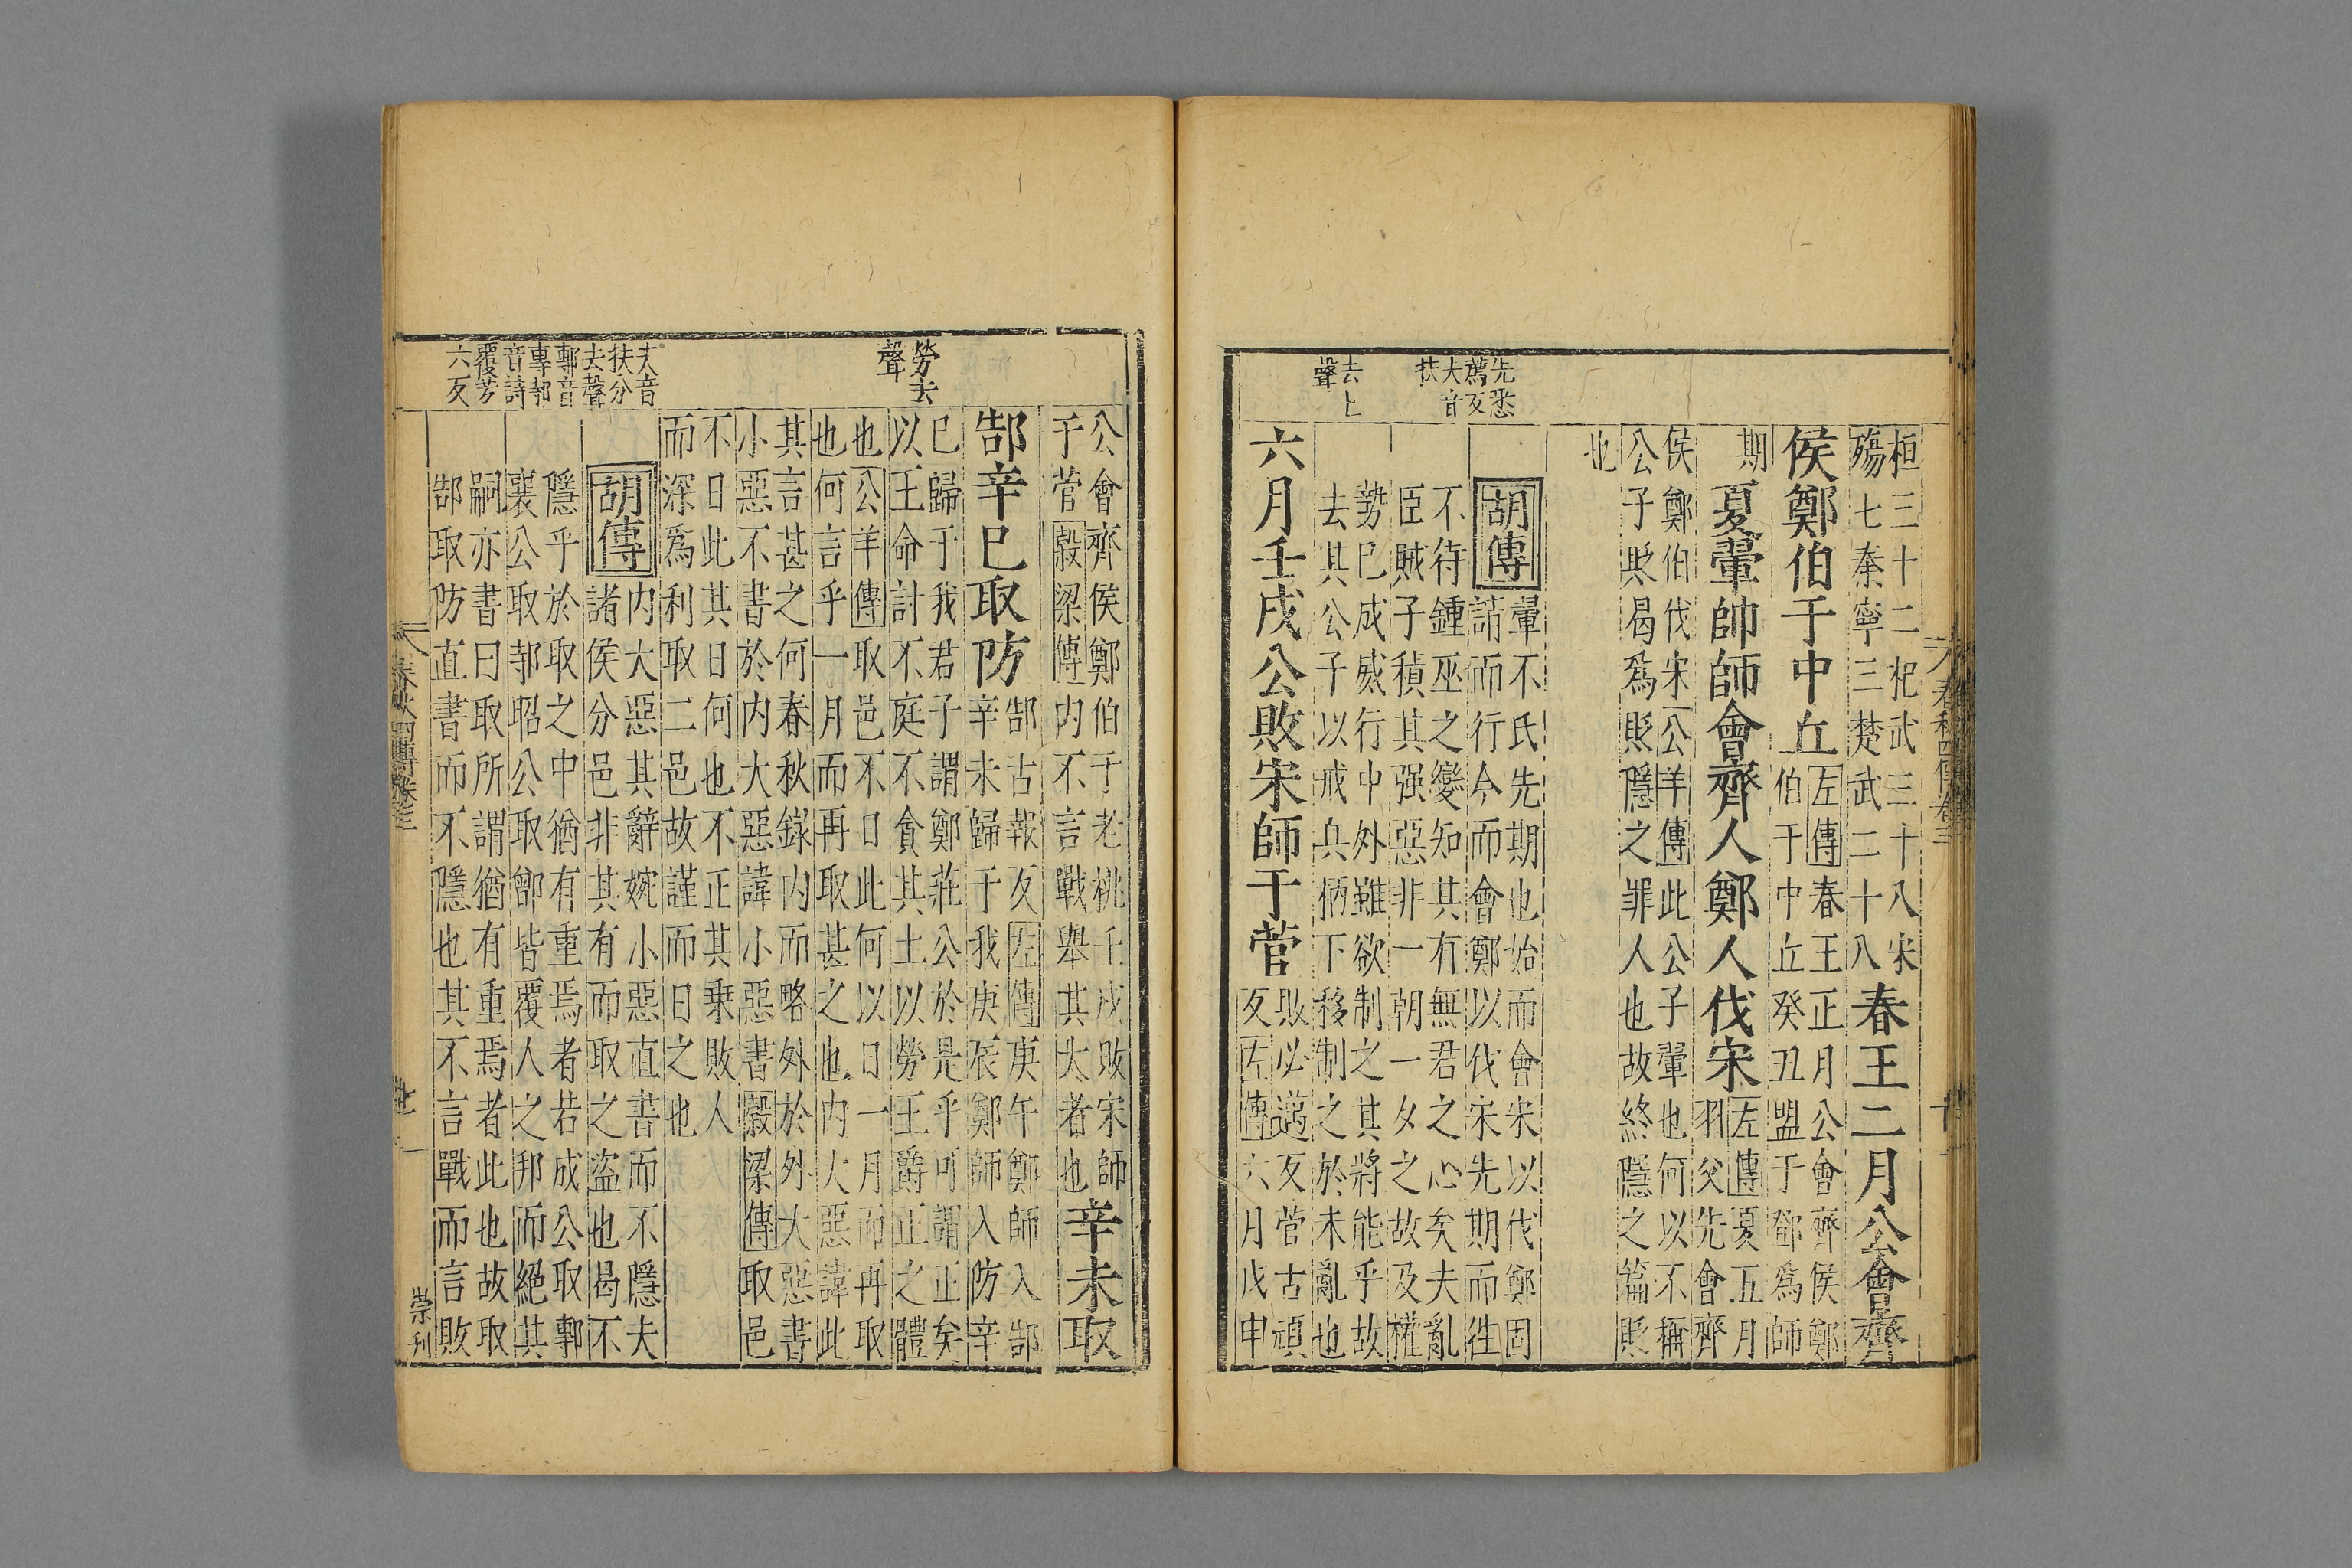 春秋四傳卷三
十
先悉
薦反
夫音
扶
去上
聲
桓三十二杞武三十八宋
殤七秦寧三楚武二十八
春王二月公會齊
侯鄭伯于中丘
左傳春王正月公會齊侯鄭
伯于中丘癸丑盟于鄧爲師
期
夏翬帥師會齊人鄭人伐宋
左傳夏五月
羽父先會齊
侯鄭伯伐宋公羊傳此公子翬也何以不稱
公子貶曷爲貶隱之罪人也故終隱之篇貶
也
胡傳
翬不氏先期也始而會宋以伐鄭固
請而行今而會鄭以伐宋先期而徃
不待鍾巫之變知其有無君之心矣夫亂
臣賊子積其强惡非一朝一夕之故及權
勢已成威行中外雖欲制之其將能乎故
去其公子以戒兵柄下移制之於未亂也
六月壬戌公敗宋師于菅
敗必邁反菅古頑
反左傳六月戊申
勞去
聲
夫音
扶分
去聲
鄟音
專邿
音詩
覆芳
六反
公會齊侯鄭伯于老桃壬戌敗宋師
于菅穀梁傳内不言戰舉其大者也
辛未取
郜辛巳取防
郜古報反左傳庚午鄭師入郜
辛未歸于我庚辰鄭師入防辛
巳歸于我君子謂鄭莊公於是乎可謂正矣
以王命討不庭不貪其土以勞王爵正之體
也公羊傳取邑不日此何以日一月而再取
也何言乎一月而再取甚之也内大惡諱此
其言甚之何春秋錄内而略外於外大惡書
小惡不書於内大惡諱小惡書穀梁傳取邑
不日此其日何也不正其乗敗人
而深爲利取二邑故謹而日之也
胡傳
内大惡其辭婉小惡直書而不隱夫
諸侯分邑非其有而取之盗也曷不
隱乎於取之中猶有重焉者若成公取鄟
襄公取邿昭公取鄫皆覆人之邦而絕其
嗣亦書曰取所謂猶有重焉者此也故取
郜取防直書而不隱也其不言戰而言敗
春秋四傳卷三
崇刊